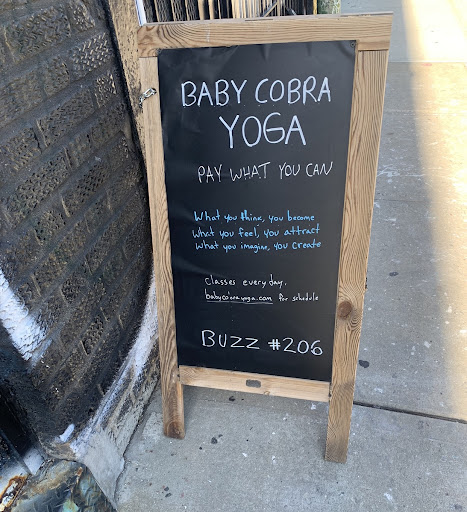 BABY COBRA
YOGA
PAY WHAT YOU CAN
What you think, you become
What you feel, you attract
What you imagine, you create
Classes every day.
babycobrayoga.com for schedule
BUZZ #206